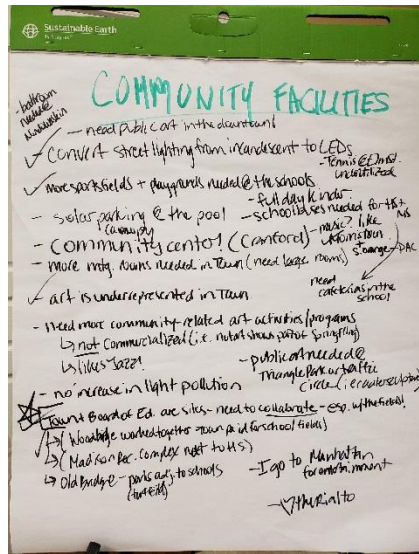 Sustainable Earth
COMMUNITY FACILITIES
- bathroom
- need public art in the downtown!
✓ Convert street lighting from incandescent to LEDs
- Tennis @
underutilized
✓ more sports fields + playgrounds needed @ the schools
- full day kinder.
- solar parking @ the pool
canopy
- school buses needed for HS + MS
- Community center! (Cranford)
- music? like
Morristown
+ S. Orange - PAC
- more mtg. rooms needed in Town (need large rooms)
✓ art is underrepresented in Town
need
cafeterias in the
school
- need more community-related art activities/programs
↳ not commercialized (i.e. not art shows part of Spring fling)
↳ likes Jazz!
- public art needed @
Triangle Park or traffic
circle (i.e. outer sculpture)
- no increase in light pollution
Town + Board of Ed. are silos - need to collaborate - esp. w/ the fields!
↳ (Woodbridge worked together - town paid for school fields)
↳ (Madison Rec. Complex next to HS)
↳ Old Bridge - parks adj. to schools
(turf fields)
- I go to Manhattan
for entertainment
- ♡ the Rialto